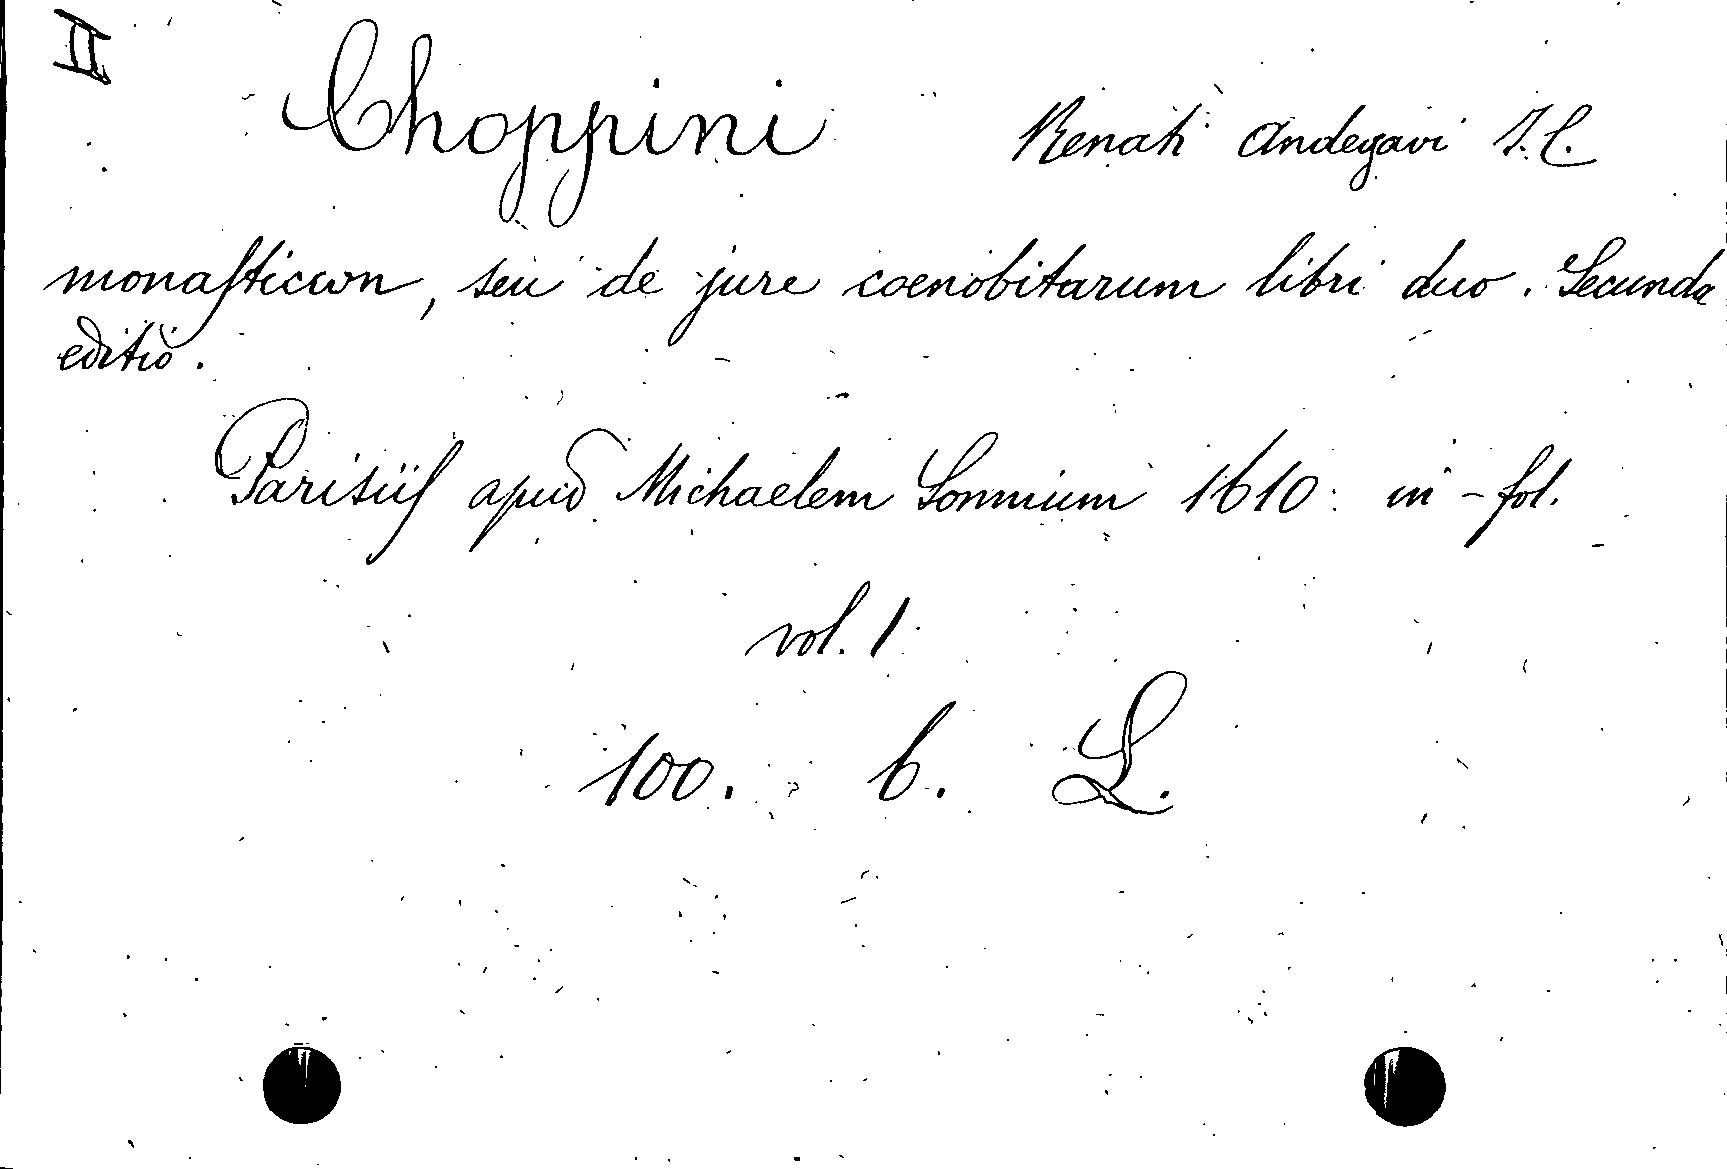 II
Choppini Renati Andegavi I. C.
monaſticωn, seu de jure coenobitarum libri duo. Secunda
editio.
Parisiiſ apud Michaelem Sonnium 1610. in-fol.
vol. 1
100. b. L.